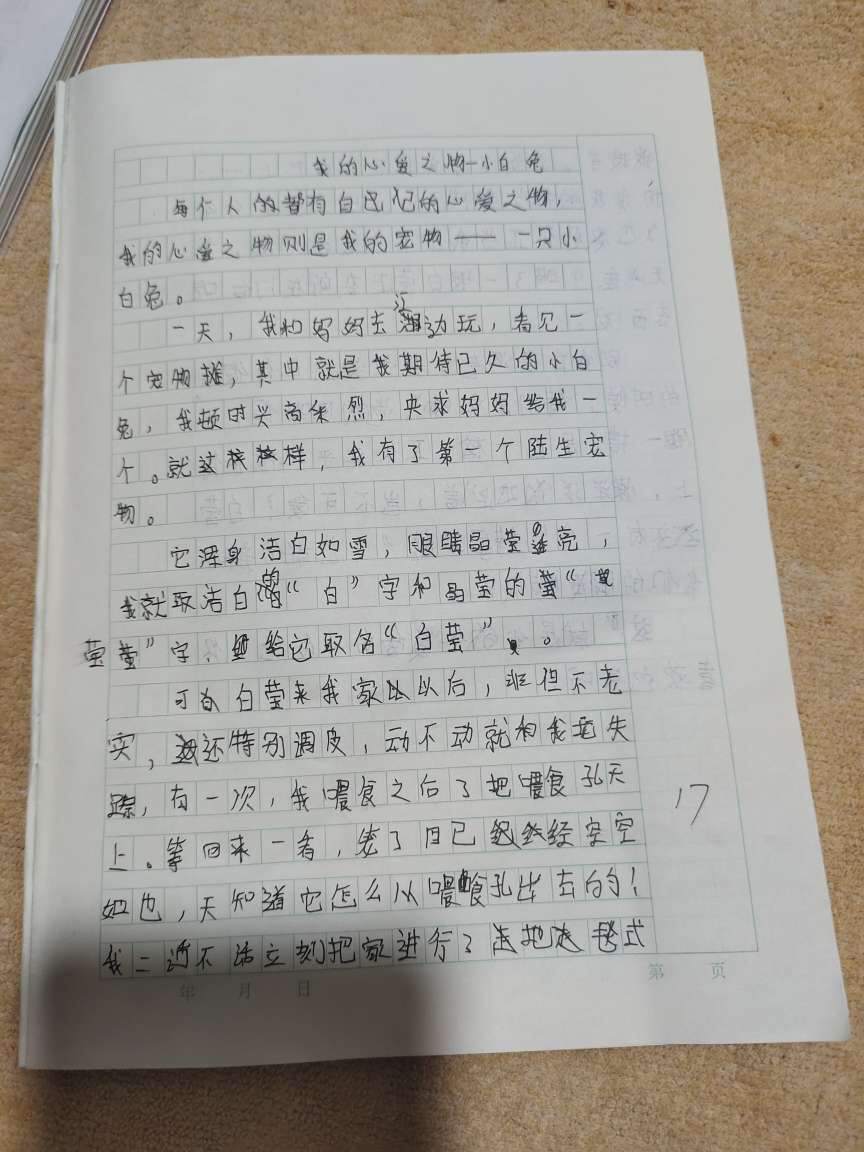 我的心爱之物—小白兔
每个人的都有自己的心爱之物，
我的心爱之物则是我的宠物——一只小
白兔。
一天，我和妈妈去江边玩，看见一
个宠物摊，其中就是我期待已久的小白
兔，我顿时兴高采烈，央求妈妈给我一
个。就这样，我有了第一个陆生宠
物。
它浑身洁白如雪，眼睛晶莹亮，
我就取洁白的“白”字和晶莹的莹“
莹”字，给它取名“白莹”。
可白莹来我家以后，但不老
实，还特别调皮，动不动就和我玩失
踪，有一次，我喂食之后了把喂食孔关
上。等回来一看，笼了已经空空
如也，天知道它怎么从喂食孔出去的！
我二话不话立刻把家进行了地毯式
17
年 月 日
第 页